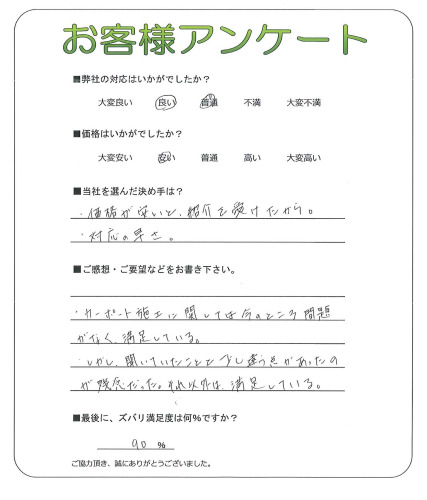 お客様アンケート
■弊社の対応はいかがでしたか？
大変良い 良い 普通 不満 大変不満
■価格はいかがでしたか？
大変安い 安い 普通 高い 大変高い
■当社を選んだ決め手は？
・価格が安いと、紹介を受けたから。
・対応の早さ。
■ご感想・ご要望などをお書き下さい。
・カーポート施工に関しては今のところ問題
がなく、満足している。
・しかし、聞いていたことと少し違う点があったの
が残念だった。それ以外は、満足している。
■最後に、ズバリ満足度は何％ですか？
90 ％
ご協力頂き、誠にありがとうございました。